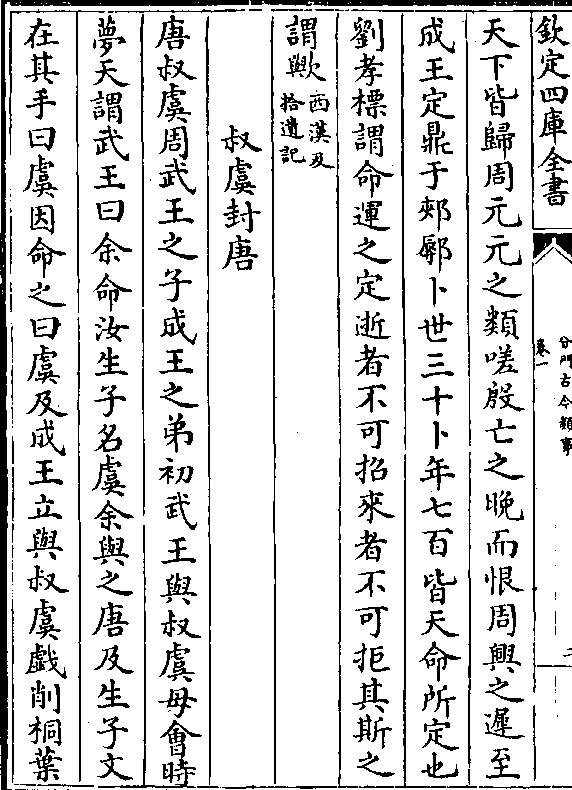 欽定四庫全書
分門古今類事
卷一
二
天下皆歸周元元之類嗟殷亡之晚而恨周興之遲至
成王定鼎于郟鄏卜世三十卜年七百皆天命所定也
劉孝標謂命運之定逝者不可招來者不可拒其斯之
謂歟西漢及
拾遺記
叔虞封唐
唐叔虞周武王之子成王之弟初武王與叔虞母會時
夢天謂武王曰余命汝生子名虞余與之唐及生子文
在其手曰虞因命之曰虞及成王立與叔虞戲削桐葉